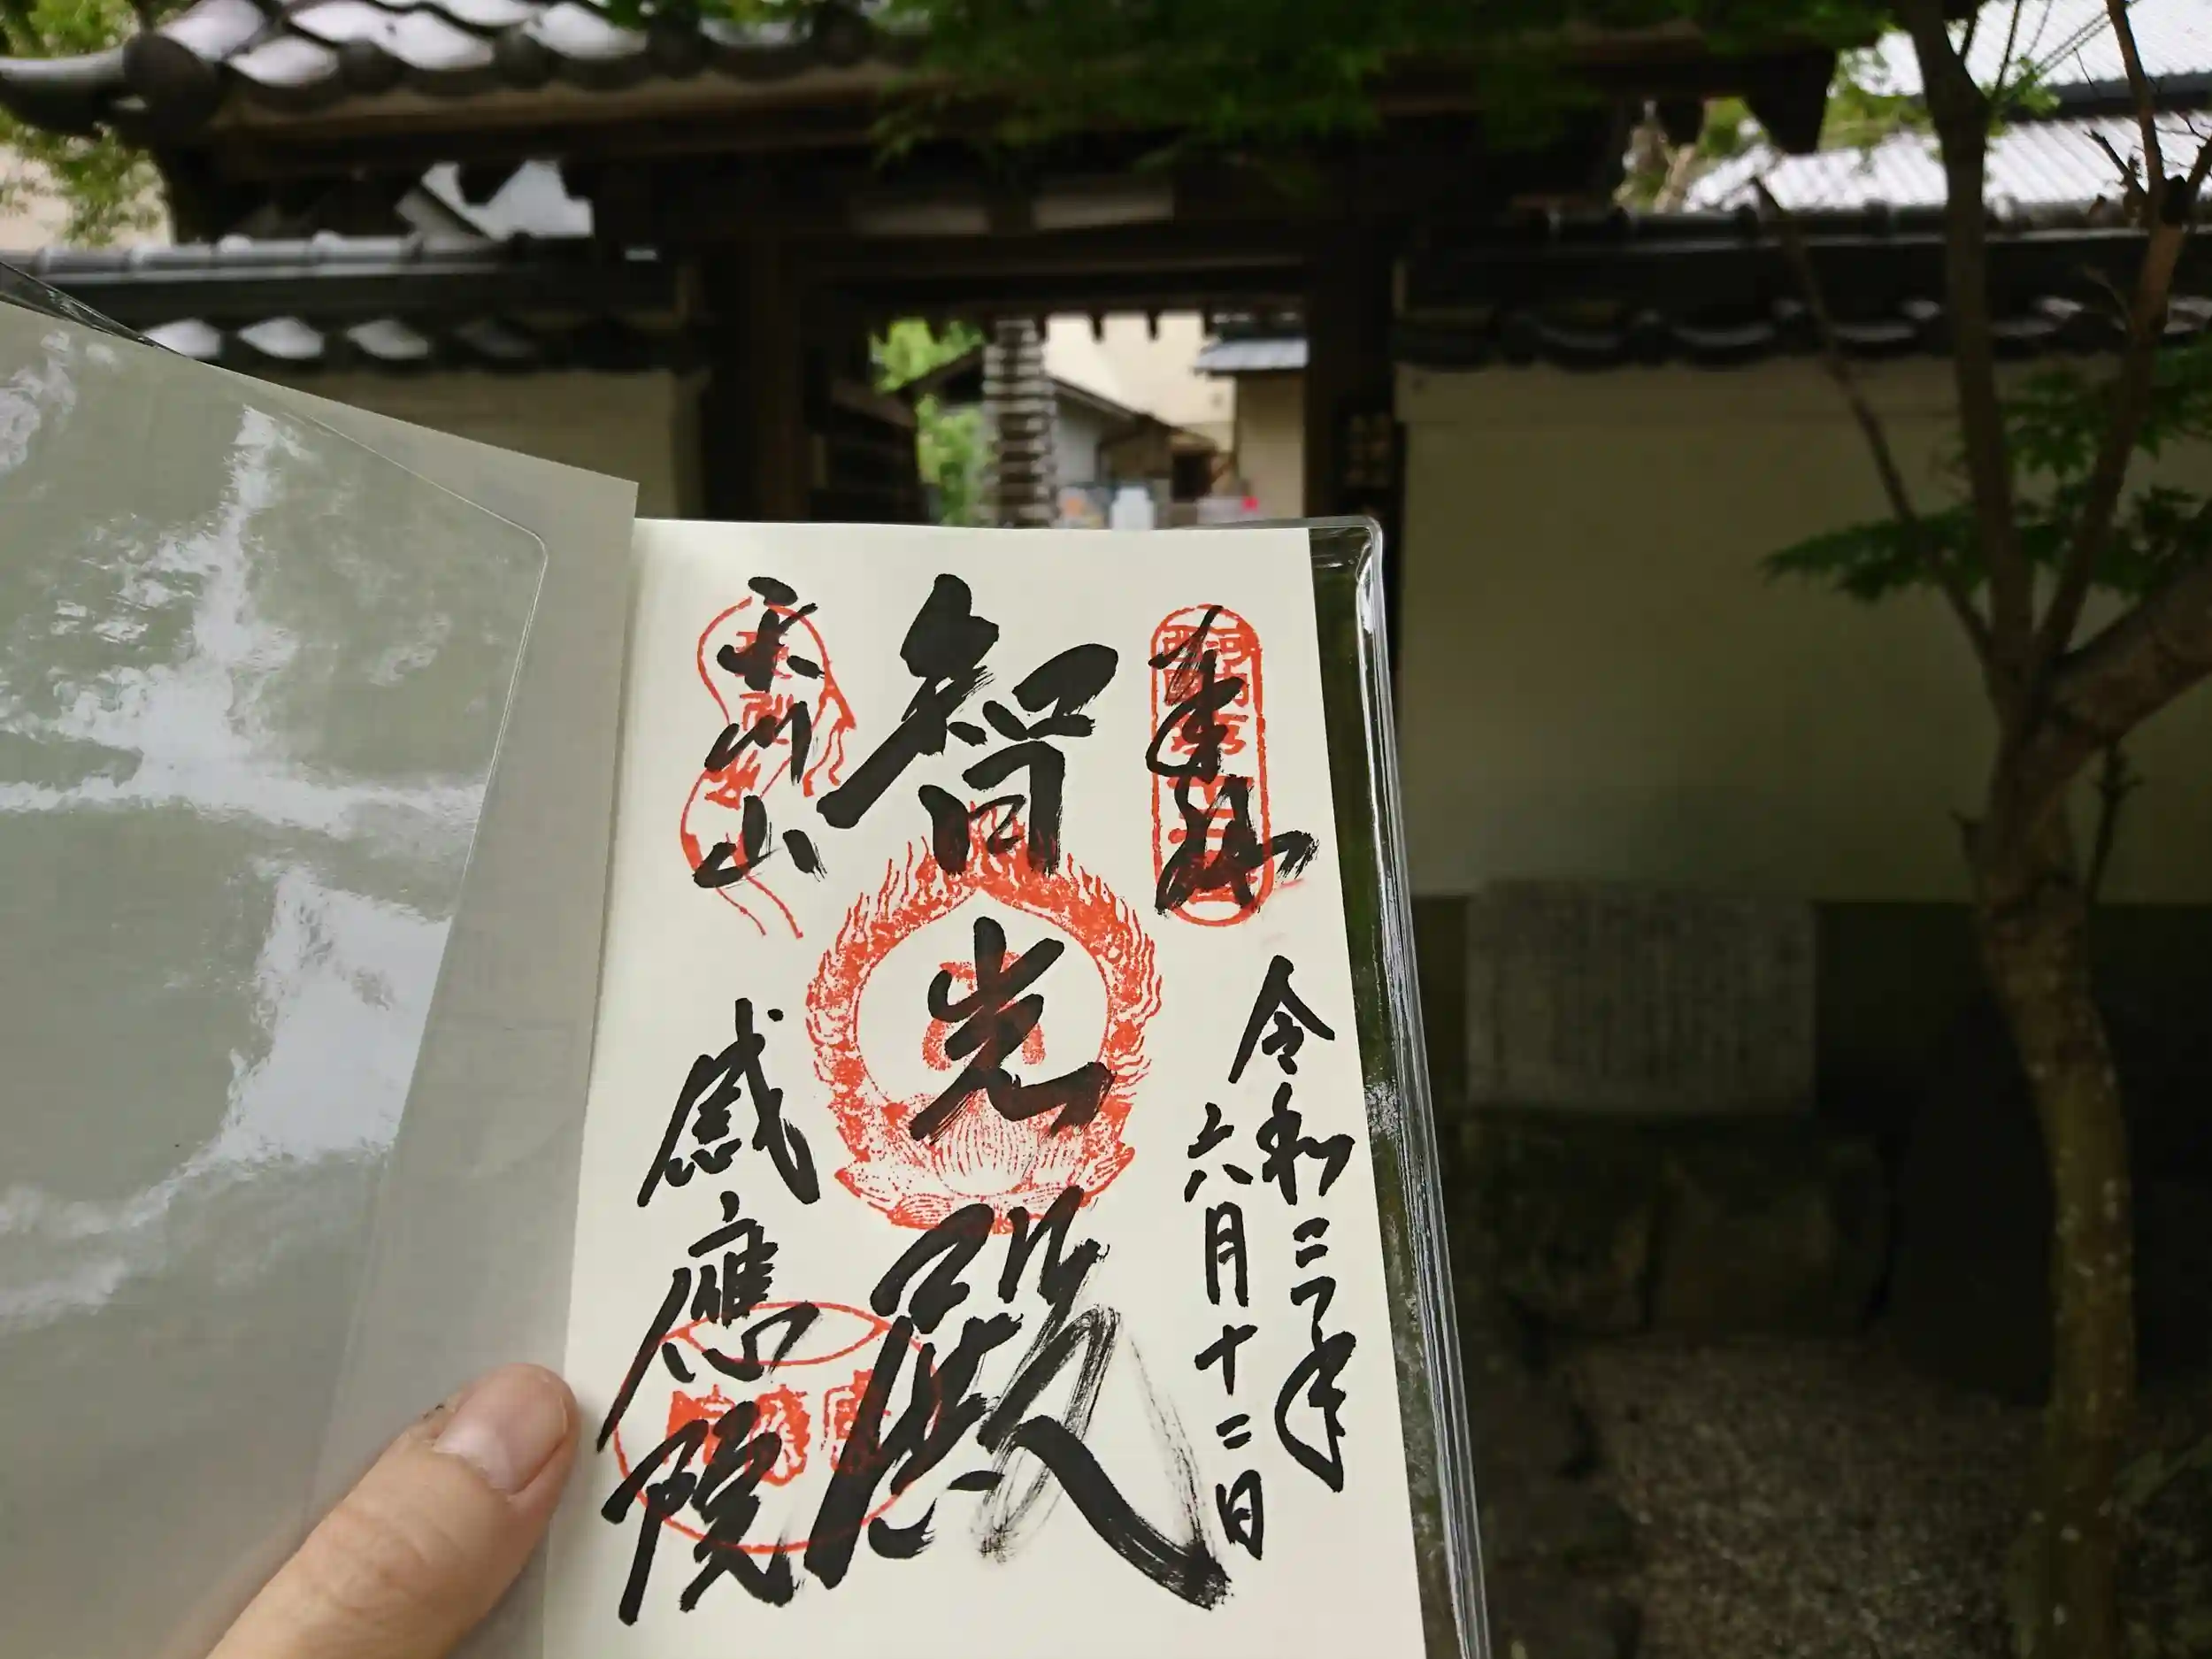 奉拝
令和三年
六月十二日
智光殿
天川山
感應院